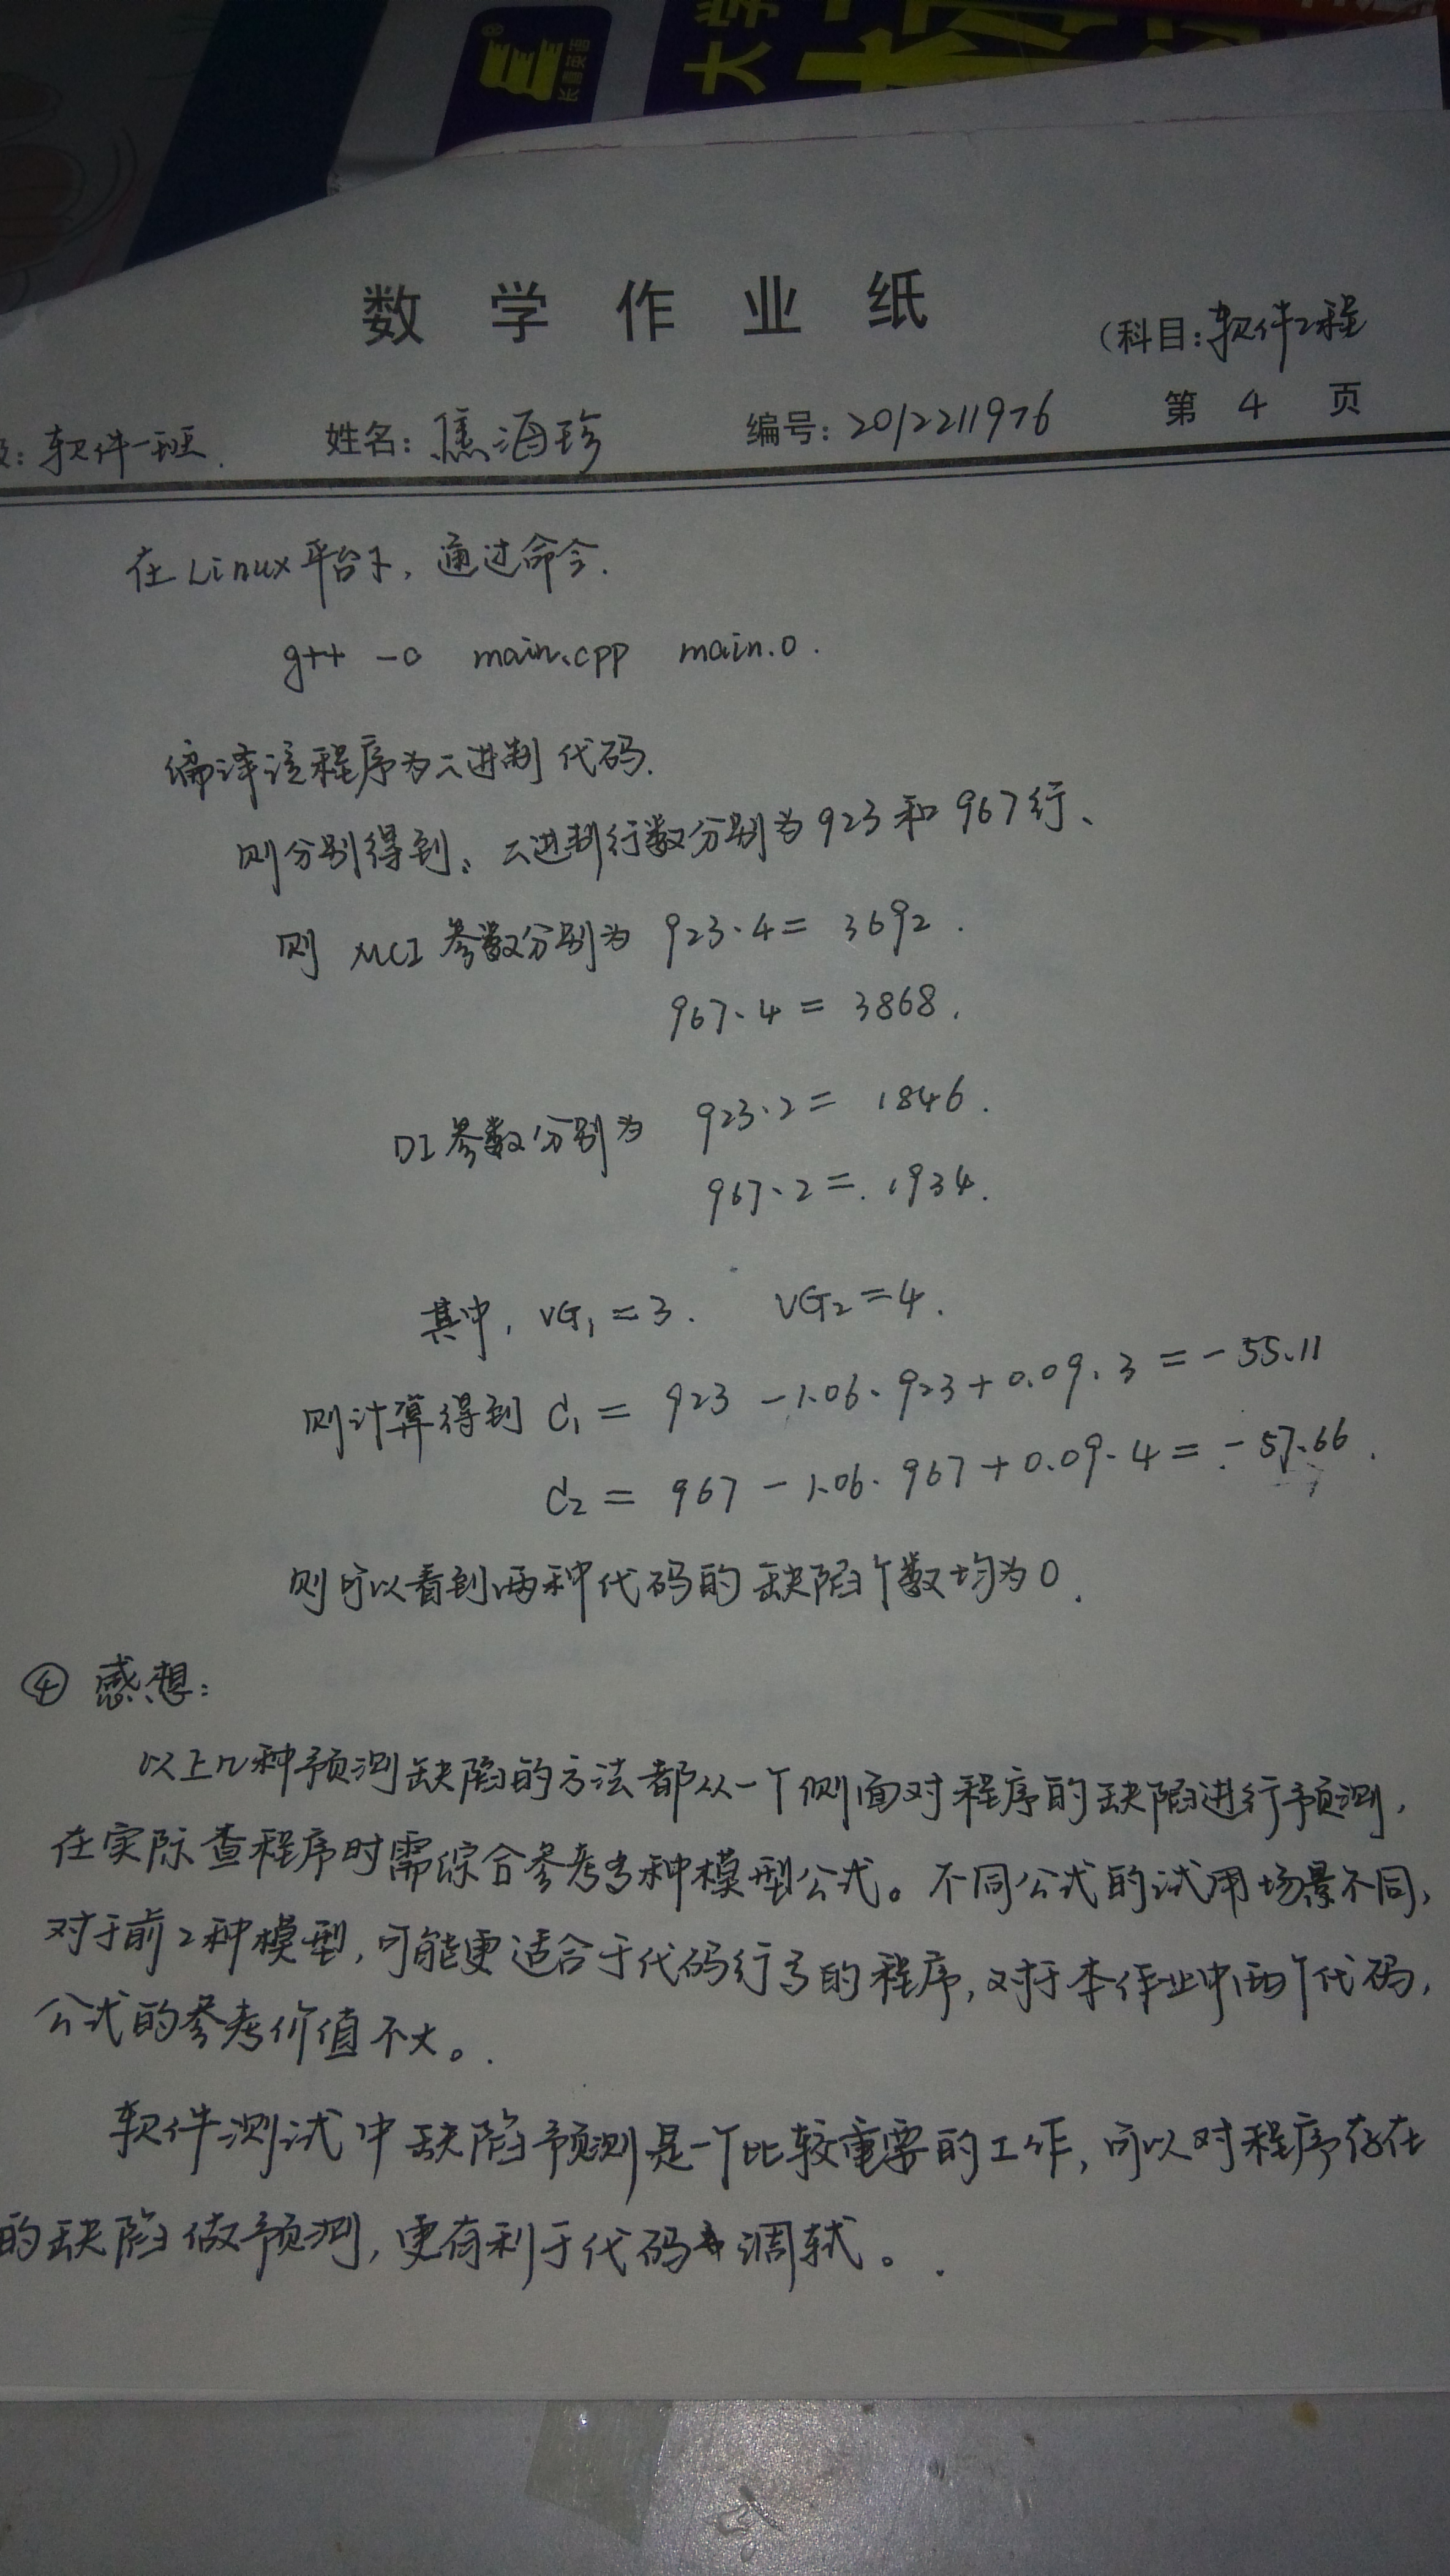 长喜英语
大学
数学作业纸
(科目:软件工程
级: 软件一班. 姓名: 焦海珍 编号: 2012211976 第 4 页
在Linux平台下, 通过命令.
g++ -o main.cpp main.o.
编译该程序为二进制代码.
则分别得到: 二进制行数分别为923和967行、
则 MCI 参数分别为 923·4= 3692.
967·4 = 3868.
DI参数分别为 923·2= 1846.
967·2= 1934.
其中, VG₁=3. VG₂=4.
则计算得到 d₁ = 923 -1.06·923+0.09·3=-55.11
d₂ = 967 -1.06·967+0.09·4=-57.66.
则可以看到两种代码的缺陷个数均为0.
④ 感想:
以上几种预测缺陷的方法都从一个侧面对程序的缺陷进行预测,
在实际查程序时需综合参考多种模型公式。不同公式的试用场景不同,
对于前2种模型,可能更适合于代码行多的程序,对于本作业中两个代码,
公式的参考价值不大。
软件测试中缺陷预测是一个比较重要的工作,可以对程序存在
的缺陷做预测,更有利于代码调试。